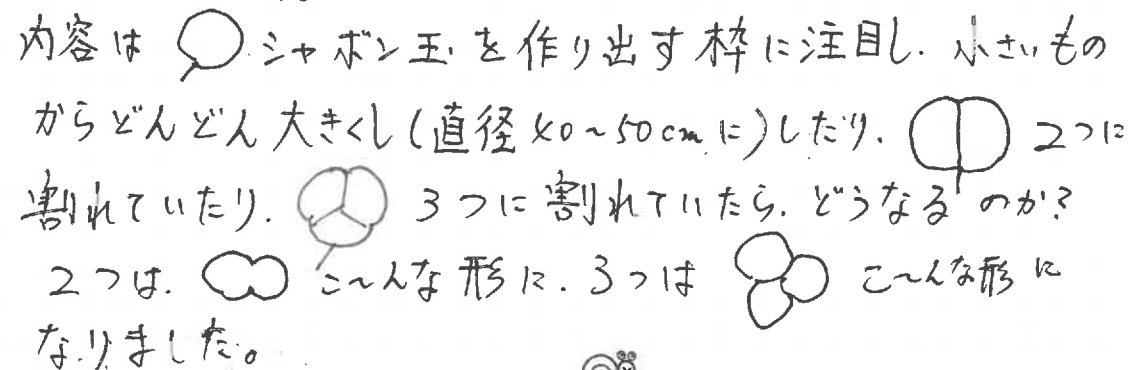 内容は シャボン玉を作り出す枠に注目し.小さいもの
からどんどん大きくし(直径40~50cmに)したり. 2つに
割れていたり. 3つに割れていたら.どうなるのか?
2つは. こ〜んな形に.3つは こ〜んな形に
なりました。